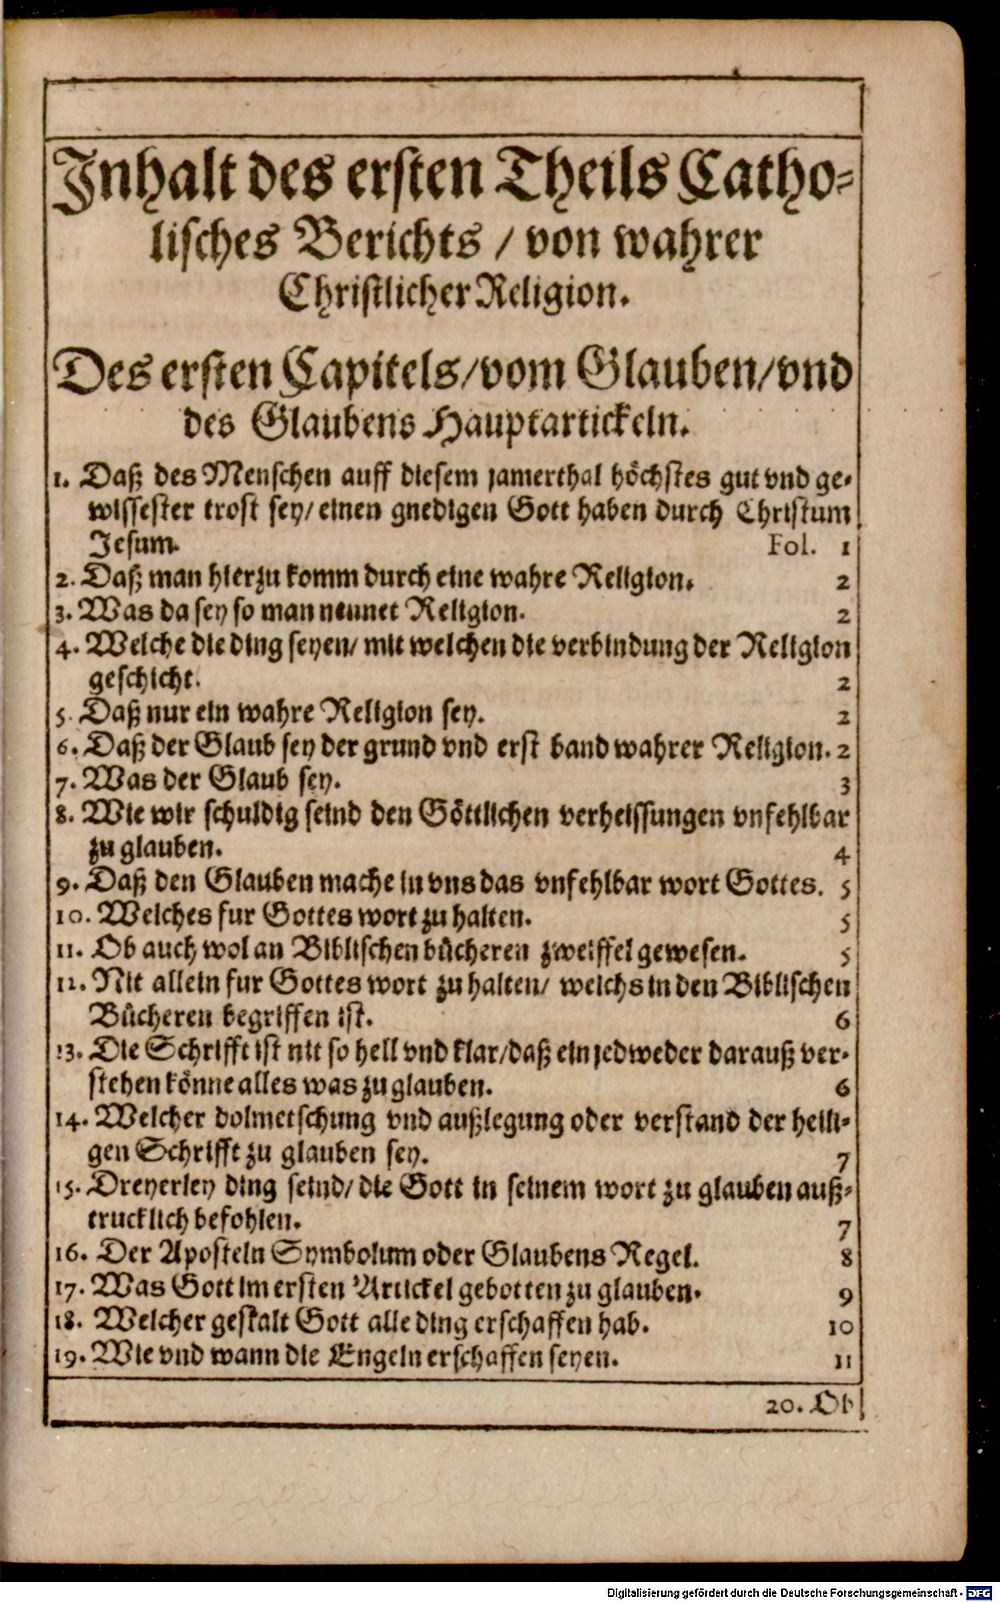 Inhalt des ersten Theils Catho-
lisches Berichts / von wahrer
Christlicher Religion.
Des ersten Capitels / vom Glauben / vnd
des Glaubens Hauptartickeln.
1. Daß des Menschen auff diesem jamerthal höchstes gut vnd ge-
wissester trost sey / einen gnedigen Gott haben durch Christum
Jesum. Fol. 1
2. Daß man hierzu komm durch eine wahre Religion. 2
3. Was da sey so man nennet Religion. 2
4. Welche die ding seyen / mit welchen die verbindung der Religion
geschicht. 2
5. Daß nur ein wahre Religion sey. 2
6. Daß der Glaub sey der grund vnd erst band wahrer Religion. 2
7. Was der Glaub sey. 3
8. Wie wir schuldig seind den Göttlichen verheissungen vnfehlbar
zu glauben. 4
9. Daß den Glauben mache in vns das vnfehlbar wort Gottes. 5
10. Welches fur Gottes wort zu halten. 5
11. Ob auch wol an Biblischen bücheren zweiffel gewesen. 5
12. Nit allein fur Gottes wort zu halten / welchs in den Biblischen
Bücheren begriffen ist. 6
13. Die Schrifft ist nit so hell vnd klar / daß ein jedweder darauß ver-
stehen könne alles was zu glauben. 6
14. Welcher dolmetschung vnd außlegung oder verstand der heili-
gen Schrifft zu glauben sey. 7
15. Dreyerley ding seind / die Gott in seinem wort zu glauben auß-
trucklich befohlen. 7
16. Der Aposteln Symbolum oder Glaubens Regel. 8
17. Was Gott im ersten Artickel gebotten zu glauben. 9
18. Welcher gestalt Gott alle ding erschaffen hab. 10
19. Wie vnd wann die Engeln erschaffen seyen. 11
20. Ob
Digitalisierung gefördert durch die Deutsche Forschungsgemeinschaft - DFG